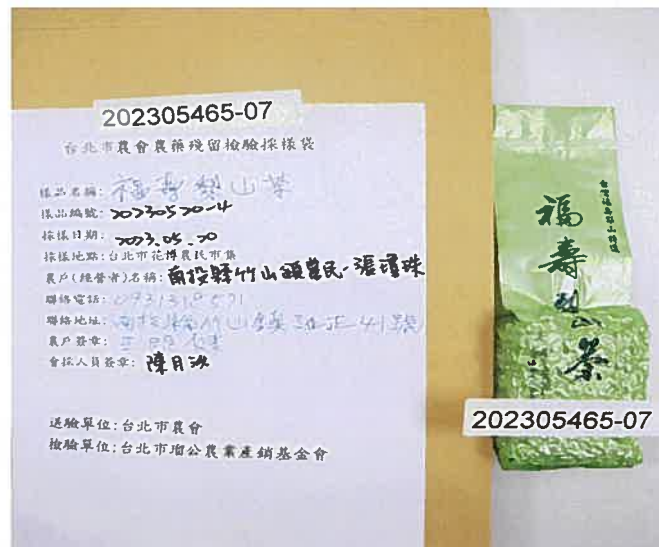 202305465-07
台北市農會農藥殘留檢驗採樣袋
樣品名稱: 福壽梨山茶
樣品編號: 20230520-4
採樣日期: 2023.05.20
採樣地點: 台北市花博農民市集
農戶(經營者)名稱: 南投縣竹山鎮農民-張瓊珠
聯絡電話:
聯絡地址: 南投縣竹山鎮 41號
農戶簽章:
會採人員簽章: 陳月
送驗單位: 台北市農會
檢驗單位: 台北市瑠公農業產銷基金會
福壽梨山茶
202305465-07